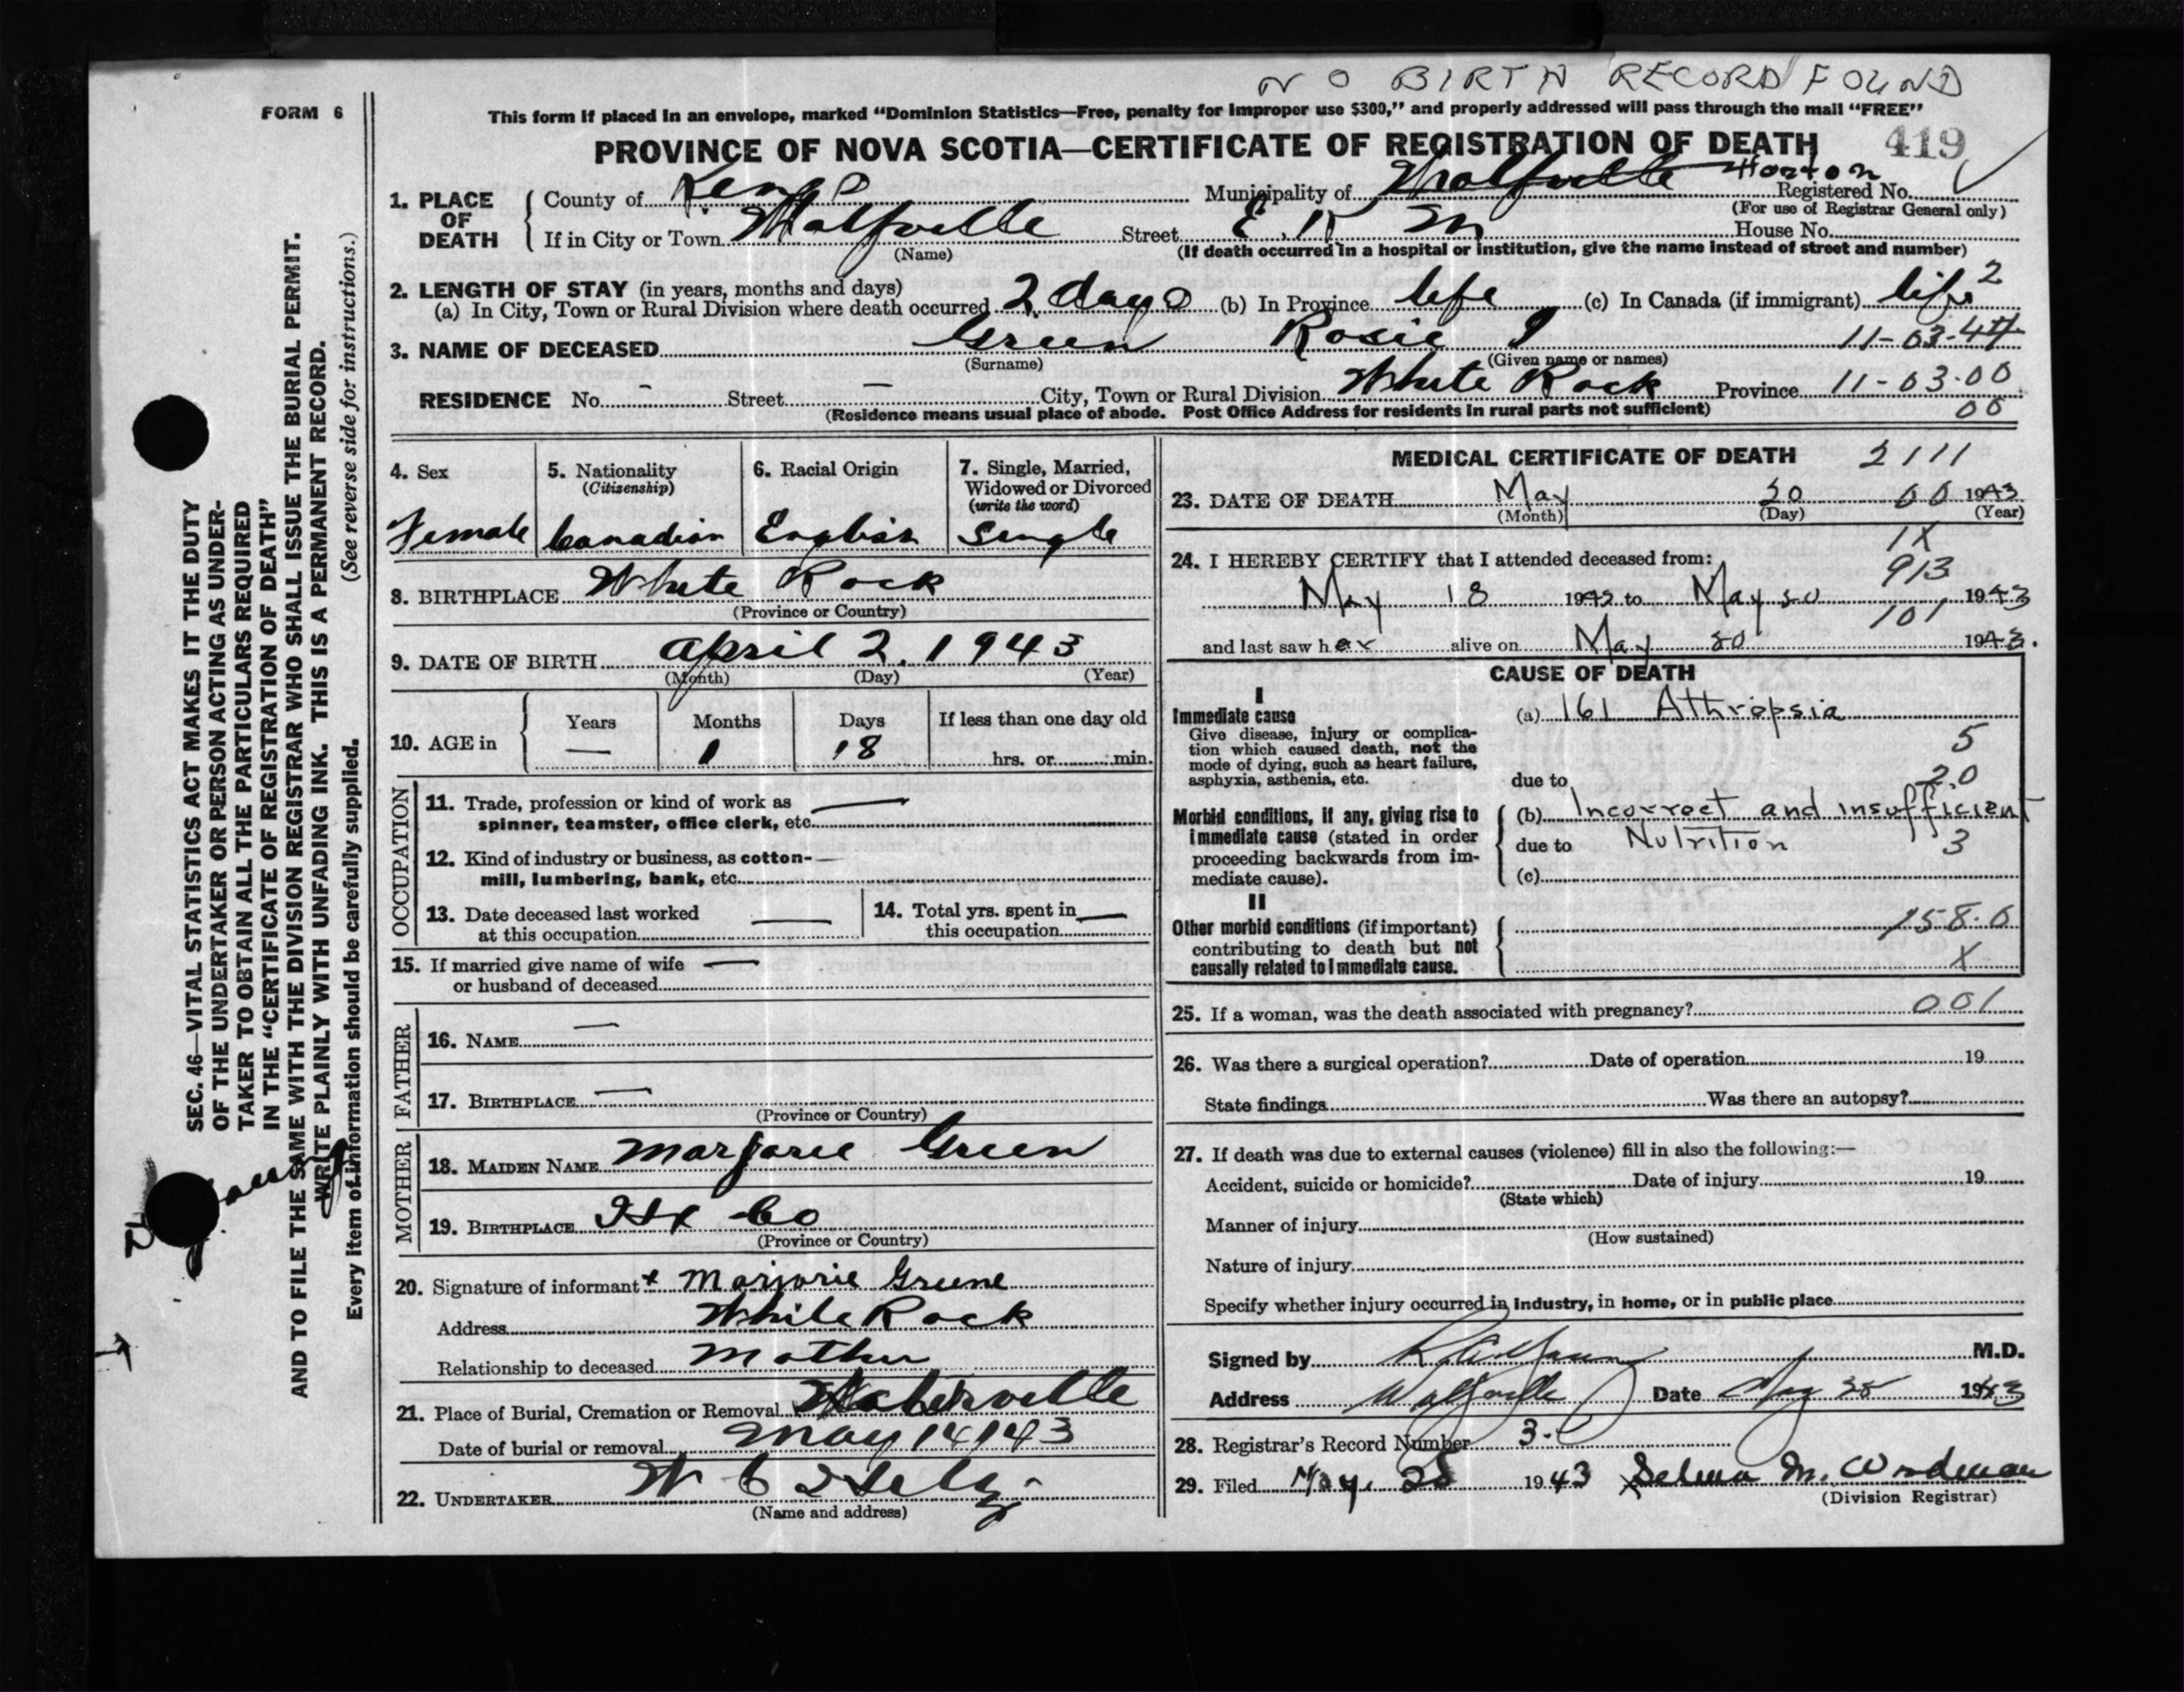 NO BIRTH RECORD FOUND
FORM 6
This form if placed in an envelope, marked “Dominion Statistics—Free, penalty for improper use $300,” and properly addressed will pass through the mail “FREE”
PROVINCE OF NOVA SCOTIA—CERTIFICATE OF REGISTRATION OF DEATH 419
1. PLACE OF DEATH
County of Kings Municipality of Wolfville Horton Registered No.
(For use of Registrar General only)
If in City or Town Wolfville Street E. K M House No.
(Name) (If death occurred in a hospital or institution, give the name instead of street and number)
2. LENGTH OF STAY (in years, months and days)
(a) In City, Town or Rural Division where death occurred 2 days (b) In Province life (c) In Canada (if immigrant) life 2
3. NAME OF DECEASED Green Rosie I 11-03-44
(Surname) (Given name or names)
RESIDENCE No. — Street — City, Town or Rural Division White Rock Province 11-03.00
(Residence means usual place of abode. Post Office Address for residents in rural parts not sufficient) 00
4. Sex Female
5. Nationality (Citizenship) Canadian
6. Racial Origin English
7. Single, Married, Widowed or Divorced (write the word) Single
8. BIRTHPLACE White Rock
(Province or Country)
9. DATE OF BIRTH April 2, 1943
(Month) (Day) (Year)
10. AGE in Years — Months 1 Days 18 If less than one day old hrs. or min.
OCCUPATION
11. Trade, profession or kind of work as spinner, teamster, office clerk, etc. —
12. Kind of industry or business, as cotton-mill, lumbering, bank, etc. —
13. Date deceased last worked at this occupation —
14. Total yrs. spent in this occupation —
15. If married give name of wife or husband of deceased —
FATHER
16. NAME —
17. BIRTHPLACE —
(Province or Country)
MOTHER
18. MAIDEN NAME Marjorie Green
19. BIRTHPLACE Hfx Co
(Province or Country)
20. Signature of informant x Marjorie Greene
Address White Rock
Relationship to deceased Mother
21. Place of Burial, Cremation or Removal Waterville
Date of burial or removal May 14 143
22. UNDERTAKER W C
(Name and address)
MEDICAL CERTIFICATE OF DEATH 2111
23. DATE OF DEATH May 20 00 1943
(Month) (Day) (Year)
24. I HEREBY CERTIFY that I attended deceased from: 1X
913
May 18 1942 to May 20 1943
101
and last saw her alive on May 20 1943.
CAUSE OF DEATH
I
Immediate cause
Give disease, injury or complication which caused death, not the mode of dying, such as heart failure, asphyxia, asthenia, etc.
(a) 161 Athropsia
5
due to 20
Morbid conditions, if any, giving rise to immediate cause (stated in order proceeding backwards from immediate cause).
(b) Incorrect and insufficient
due to Nutrition 3
(c)
II
Other morbid conditions (if important) contributing to death but not causally related to immediate cause.
158.0
X
25. If a woman, was the death associated with pregnancy? 001
26. Was there a surgical operation? Date of operation 19
State findings Was there an autopsy?
27. If death was due to external causes (violence) fill in also the following:—
Accident, suicide or homicide? Date of injury 19
(State which)
Manner of injury
(How sustained)
Nature of injury
Specify whether injury occurred in industry, in home, or in public place
Signed by M.D.
Address Wolfville Date May 25 1943
28. Registrar's Record Number 3.
29. Filed May. 25 1943 Selma M. Woodman
(Division Registrar)
SEC. 46—VITAL STATISTICS ACT MAKES IT THE DUTY
OF THE UNDERTAKER OR PERSON ACTING AS UNDER-
TAKER TO OBTAIN ALL THE PARTICULARS REQUIRED
IN THE “CERTIFICATE OF REGISTRATION OF DEATH”
AND TO FILE THE SAME WITH THE DIVISION REGISTRAR WHO SHALL ISSUE THE BURIAL PERMIT.
WRITE PLAINLY WITH UNFADING INK. THIS IS A PERMANENT RECORD.
Every item of information should be carefully supplied. (See reverse side for instructions.)